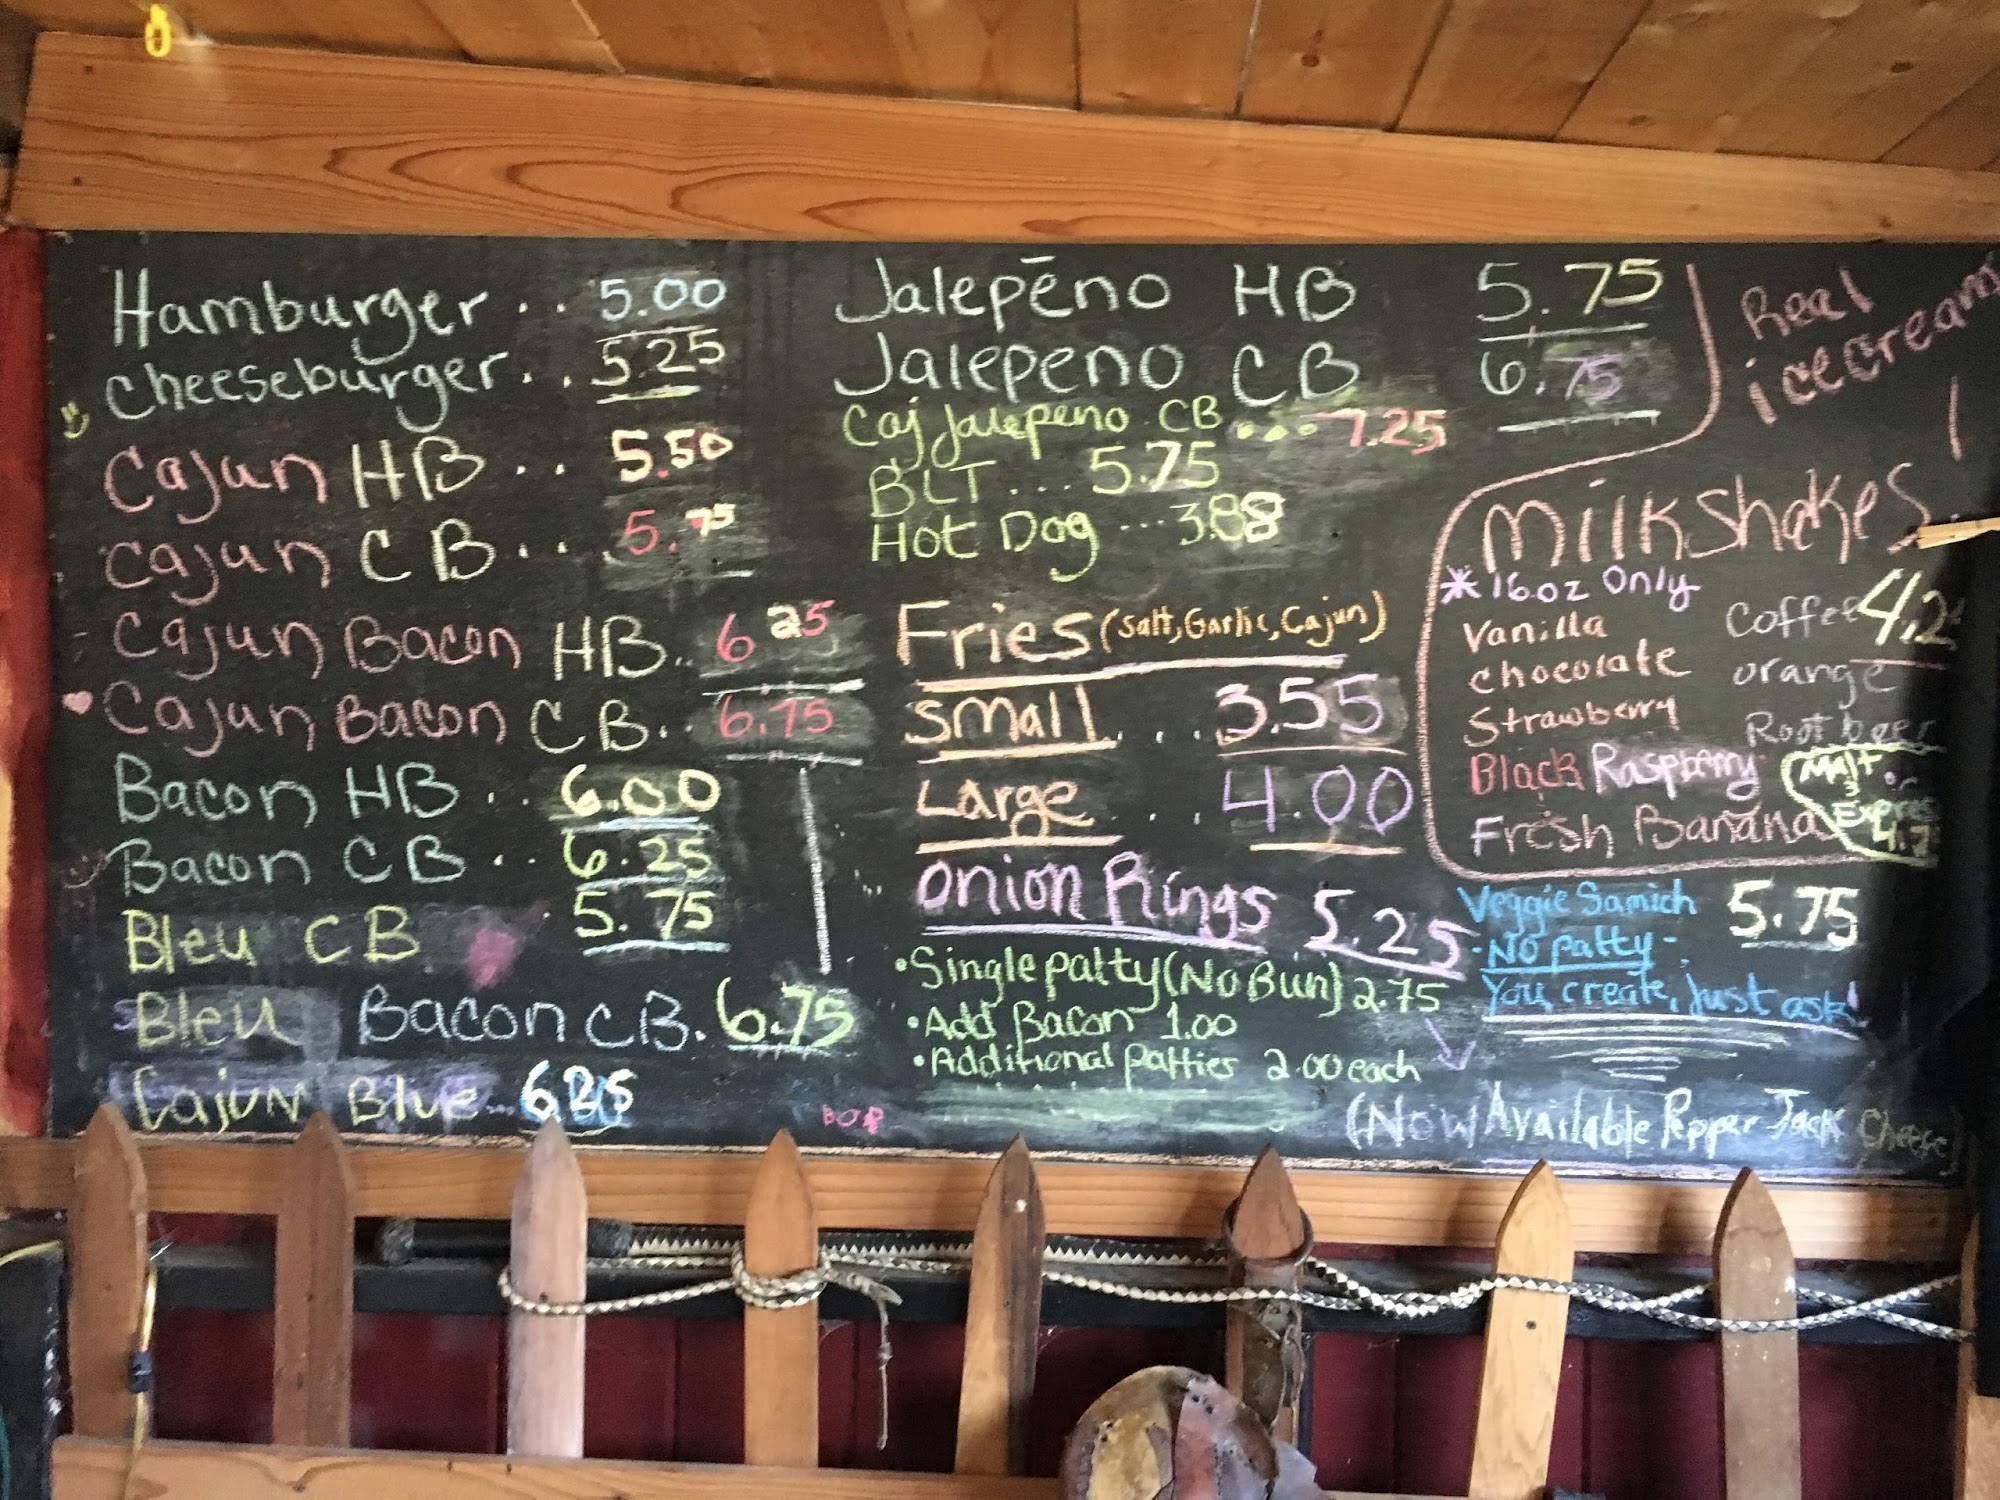 Hamburger .. 5.00
Cheeseburger... 5.25
Cajun HB .. 5.50
Cajun CB ... 5.75
Cajun Bacon HB.. 6 25
Cajun Bacon CB.. 6.75
Bacon HB .. 6.00
Bacon CB .. 6.25
Bleu CB 5.75
Bleu Bacon CB. 6.75
Cajun Blue...
Jalepēno HB 5.75
Jalepeno CB 6.75
Caj Jalepeno CB .... 7.25
BLT .... 5.75
Hot Dog ... 3.88
Fries (Salt, Garlic, Cajun)
Small ... 3.55
Large ... 4.00
Onion Rings 5.25
• Single patty (No Bun) 2.75
• Add Bacon 1.00
• Additional Patties 2.00 each
Real
icecream
Milkshakes
*16oz Only
Vanilla
Chocolate
Strawberry
Black Raspberry
Fresh Banana
Coffee
orange
Root beer
Malt or
Veggie Samich 5.75
- No patty -
You create, Just ask!
(Now Available Pepper Jack Cheese)